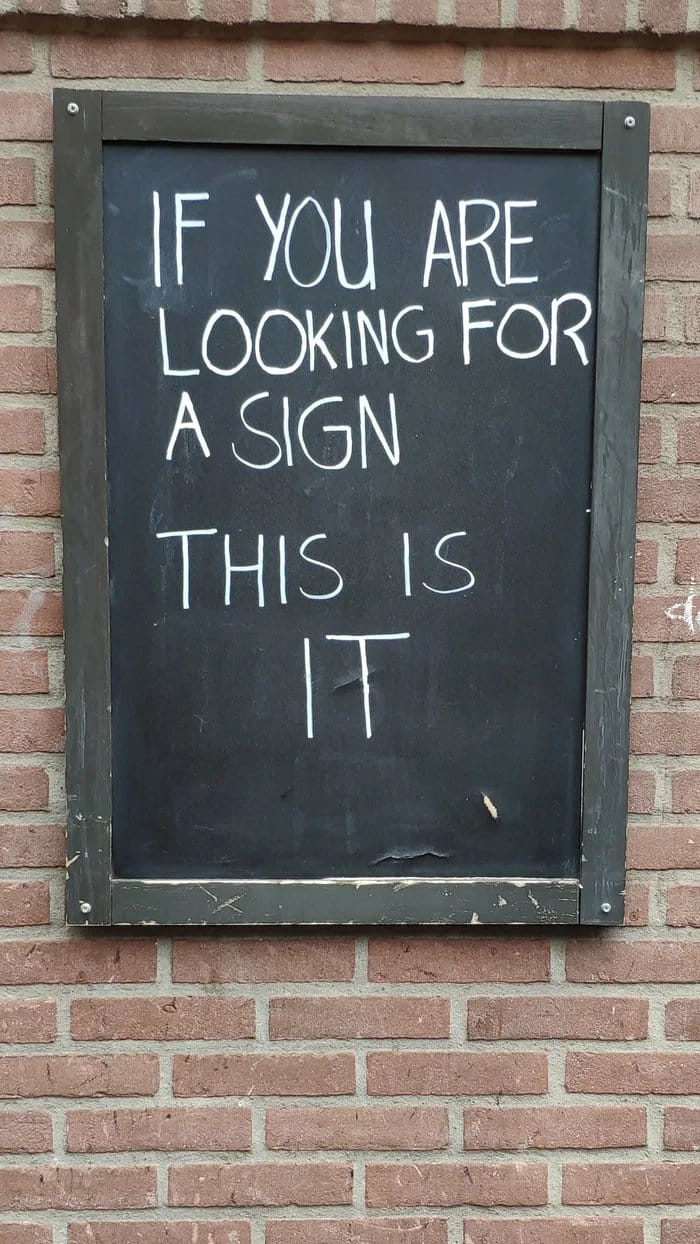 IF YOU ARE
LOOKING FOR
A SIGN
THIS IS
IT